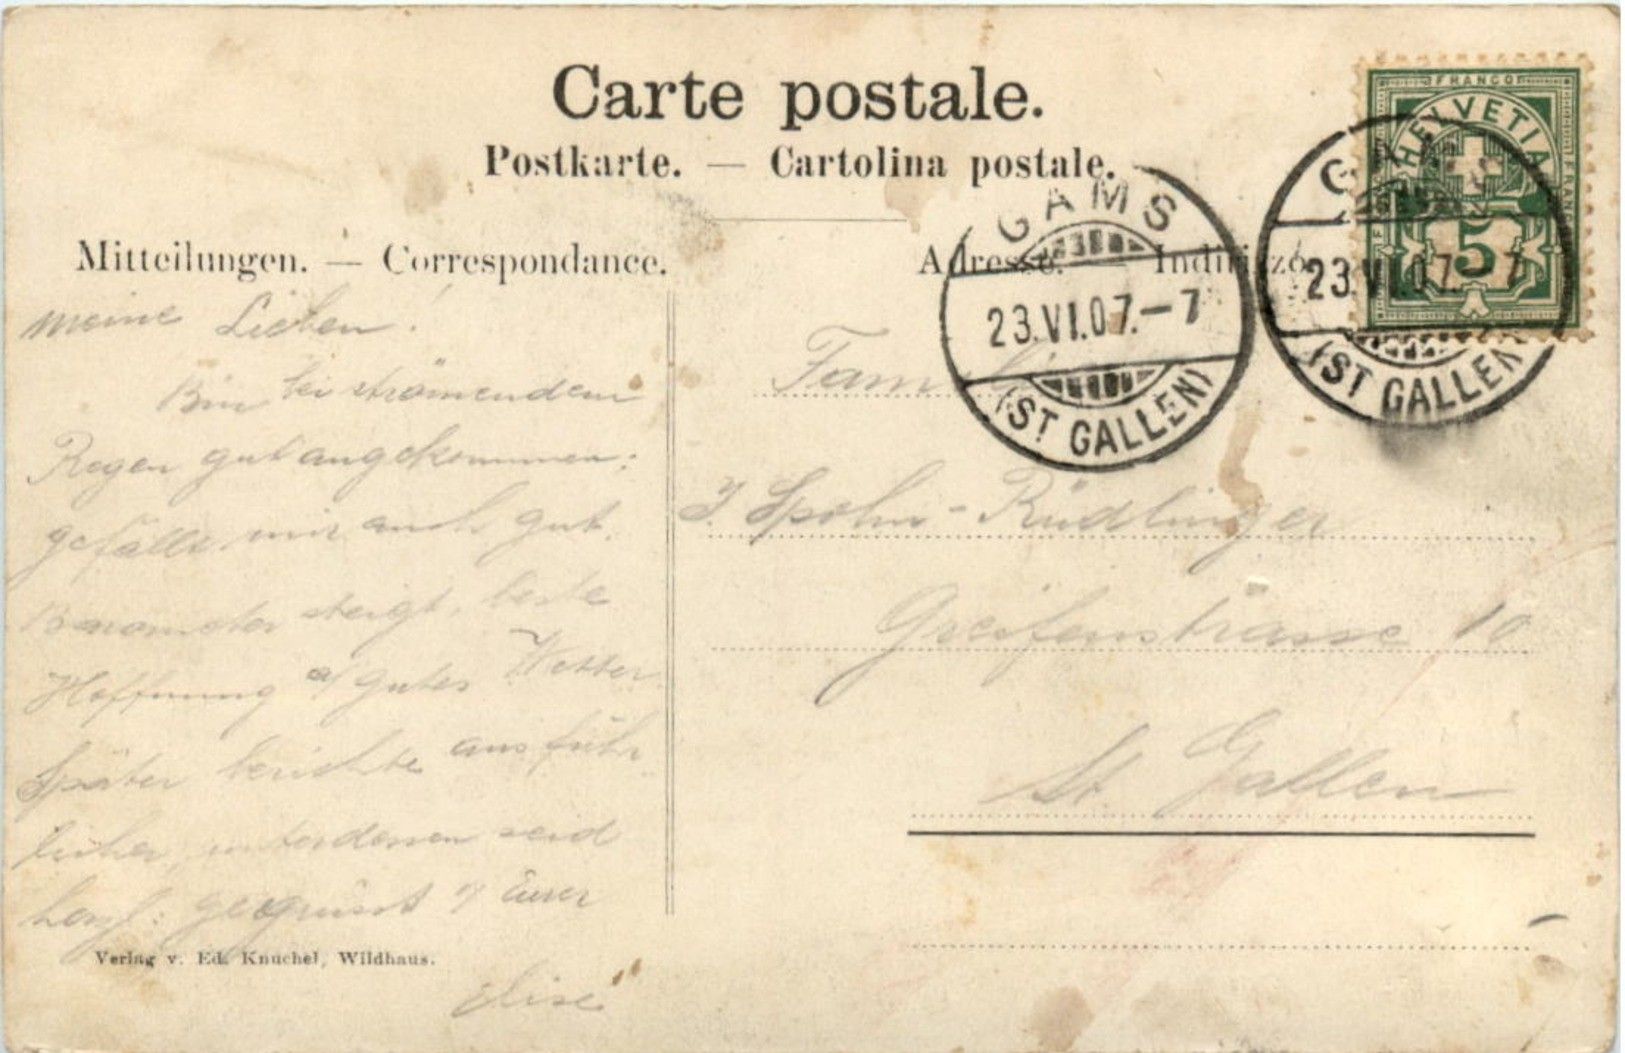 Carte postale.
Postkarte. — Cartolina postale.
Mitteilungen. — Correspondance.
Adresse. — Indirizzo.
FRANCO
HELVETIA
5
GAMS
23.VI.07.-7
(ST GALLEN)
23.VI.07.-7
(ST GALLEN)
meine Lieben!
Bin bei strömendem
Regen gut angekommen;
gefällt mir auch gut.
Barometer steigt, beste
Hoffnung a/ gutes Wetter.
Später berichte ausführ-
licher, unterdessen seid
herzl: gegrüsst v Eurer
Elise
Familie
J. Spohn-Rüdlinger
Greifenstrasse 10
St. Gallen
Verlag v. Ed. Knuchel, Wildhaus.